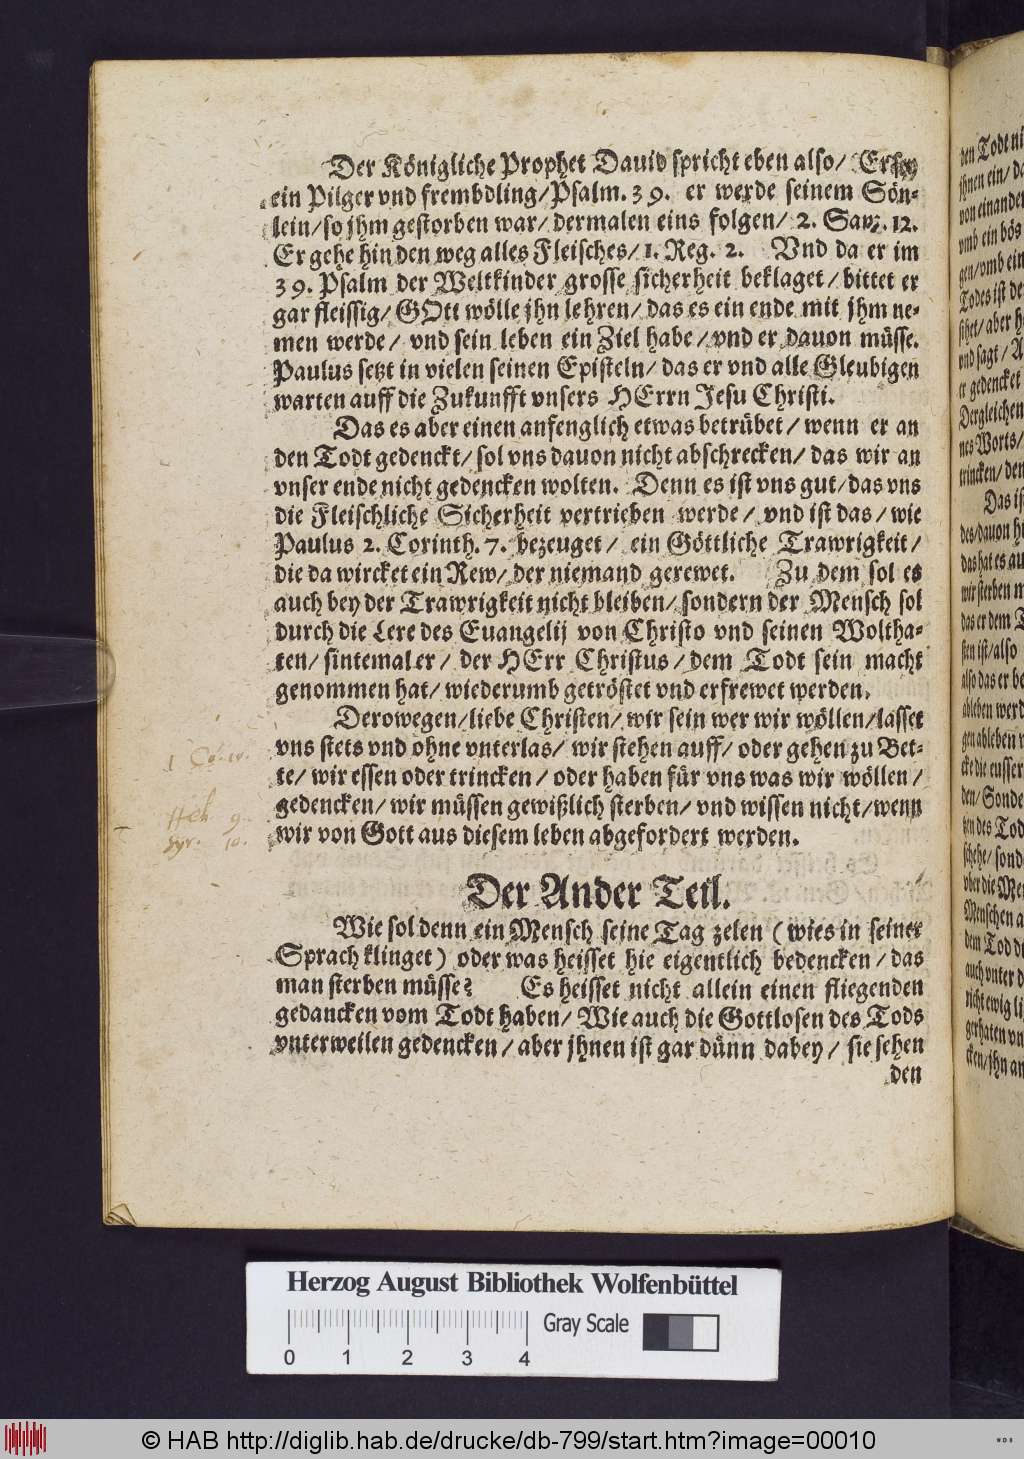 Der Königliche Prophet Dauid spricht eben also/ Er sey
ein Pilger vnd frembdling/ Psalm. 39. er werde seinem Sön-
lein/ so jhm gestorben war/ dermalen eins folgen/ 2. Sam. 12.
Er gehe hin den weg alles Fleisches/ 1. Reg. 2. Vnd da er im
39. Psalm der Weltkinder grosse sicherheit beklaget/ bittet er
gar fleissig/ GOtt wölle jhn lehren/ das es ein ende mit jhm ne-
men werde/ vnd sein leben ein Ziel habe/ vnd er dauon müsse.
Paulus setzt in vielen seinen Episteln/ das er vnd alle Gleubigen
warten auff die Zukunfft vnsers HErrn Jesu Christi.
Das es aber einen anfenglich etwas betrübet/ wenn er an
den Todt gedenckt/ sol vns dauon nicht abschrecken/ das wir an
vnser ende nicht gedencken wolten. Denn es ist vns gut/ das vns
die Fleischliche Sicherheit vertrieben werde/ vnd ist das/ wie
Paulus 2. Corinth. 7. bezeuget/ ein Göttliche Trawrigkeit/
die da wircket ein Rew/ der niemand gerewet. Zu dem sol es
auch bey der Trawrigkeit nicht bleiben/ sondern der Mensch sol
durch die Lere des Euangelij von Christo vnd seinen Woltha-
ten/ sintemal er/ der HErr Christus/ dem Todt sein macht
genommen hat/ wiederumb getröstet vnd erfrewet werden.
Derowegen/ liebe Christen/ wir sein wer wir wöllen/ lasset
vns stets vnd ohne vnterlas/ wir stehen auff/ oder gehen zu Bet-
te/ wir essen oder trincken/ oder haben für vns was wir wöllen/
gedencken/ wir müssen gewißlich sterben/ vnd wissen nicht/ wenn
wir von Gott aus diesem leben abgefordert werden.
1 Co. 10.
Heb 9.
Syr. 10.
Der Ander Teil.
Wie sol denn ein Mensch seine Tag zelen (wies in seiner
Sprach klinget) oder was heisset hie eigentlich bedencken/ das
man sterben müsse? Es heisset nicht allein einen fliegenden
gedancken vom Todt haben/ Wie auch die Gottlosen des Tods
vnterweilen gedencken/ aber jhnen ist gar dünn dabey/ sie sehen
den
den Todt ni
jhnen ein/ da
von einander
vmb ein bös
gen/ vmb ein
Todes ist de
sihet/ aber h
vnd sagt/ A
er gedencket
Dergleichen
nes Worts/
trincken/ den
Das is
des/ dauon h
das hat es au
wir sterben m
das er dem T
sten ist/ also
also das er be
ableben werd
gen ableben
cke die eusser
den/ Sonde
hen des Tod
schehe/ sond
vber die Me
Menschen a
dem Tod d
auch vnter d
nicht ewig li
gerhaten vn
cken/ jhn an
Herzog August Bibliothek Wolfenbüttel
Gray Scale
0 1 2 3 4
© HAB http://diglib.hab.de/drucke/db-799/start.htm?image=00010